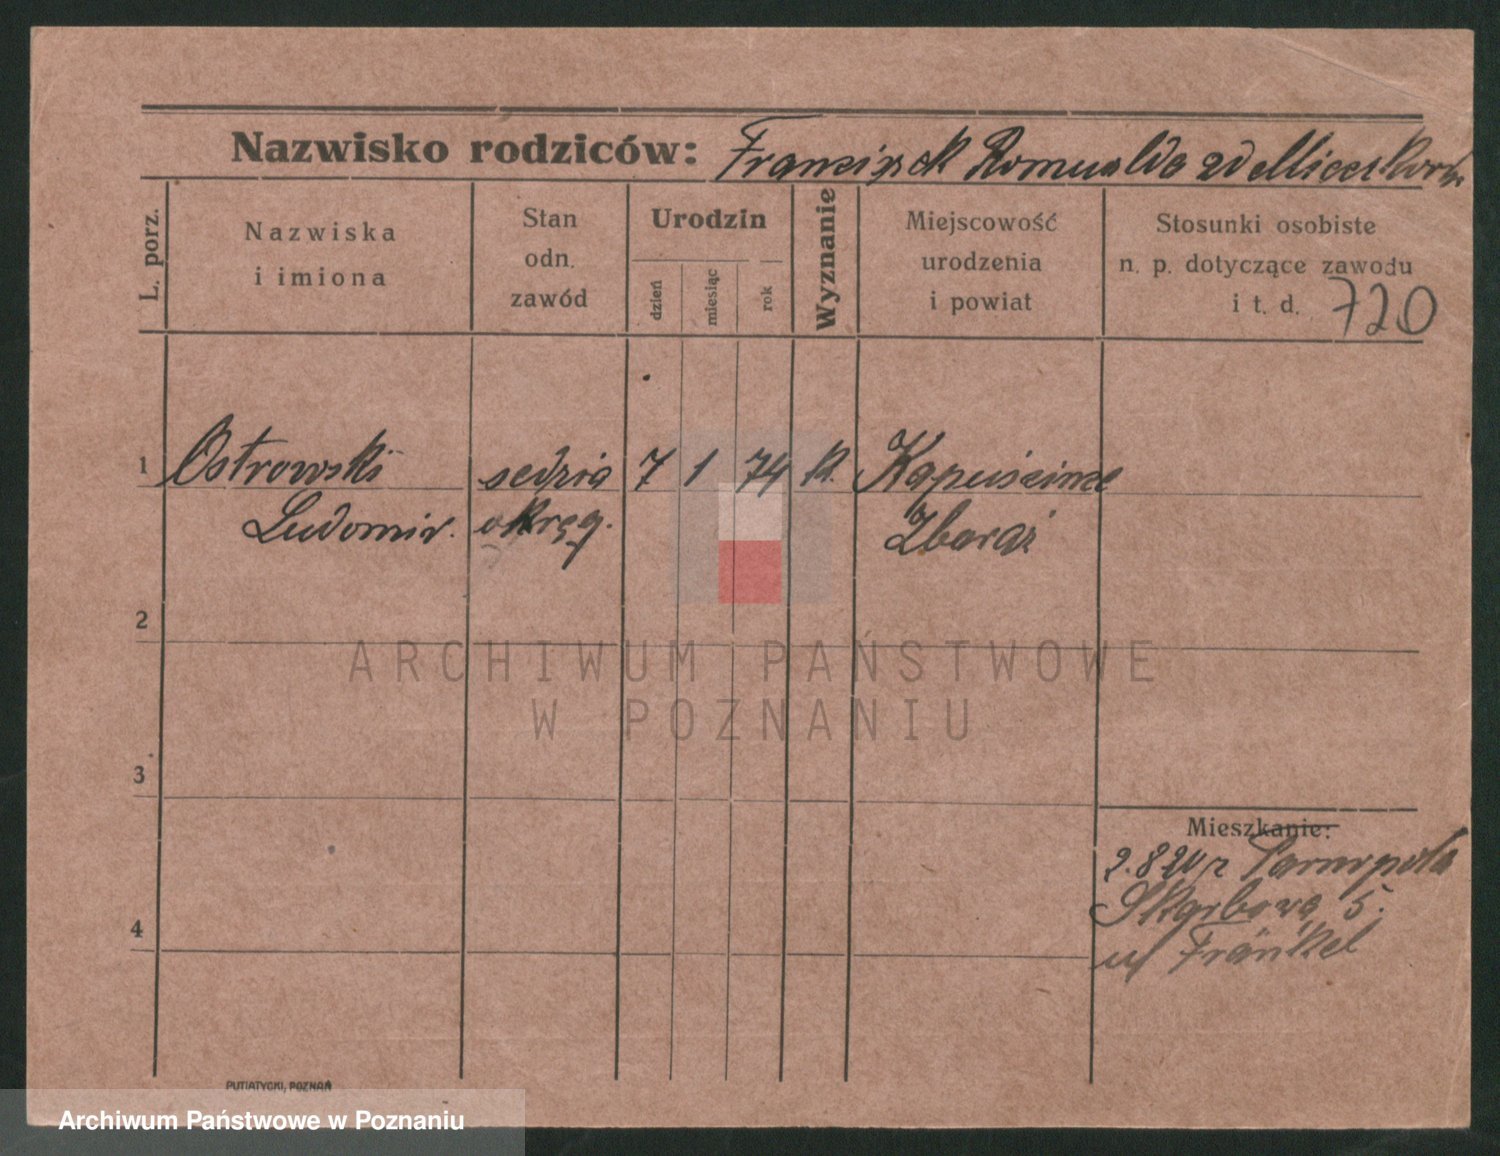 Nazwisko rodziców: Franciszek Romualda zd
L. porz.
Nazwiska
i imiona
Stan
odn.
zawód
Urodzin
dzień
miesiąc
rok
Wyznanie
Miejscowość
urodzenia
i powiat
Stosunki osobiste
n. p. dotyczące zawodu
i t. d. 720
1 Ostrowski sędzia 7 1 74 k.
Ludomir. okręg. Zbaraż
2
ARCHIWUM PAŃSTWOWE
W POZNANIU
3
Mieszkanie:
2.8 z Tarnopola
4 Skarbowa 5.
u/ Fränkel
PUTIATYCKI, POZNAŃ
Archiwum Państwowe w Poznaniu